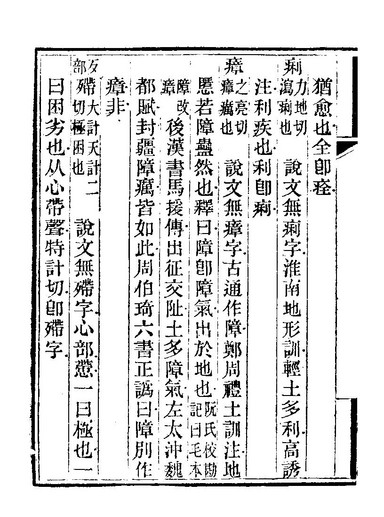 猶愈也全卽痊
痢力地切瀉痢也 說文無痢字淮南地形訓輕土多利高誘
注利疾也利卽痢
瘴之亮切瘴癘也 說文無瘴字古通作障鄭周禮土訓注地
慝若障蠱然也釋曰障卽障氣出於地也阮氏校勘記曰毛本
障改瘴 後漢書馬援傳出征交阯土多障氣左太沖魏
都賦封疆障癘皆如此周伯琦六書正譌曰障別作
瘴非
歹部
殢大計天計二切極困也 說文無殢字心部懘一曰極也一
曰困劣也从心帶聲特計切卽殢字